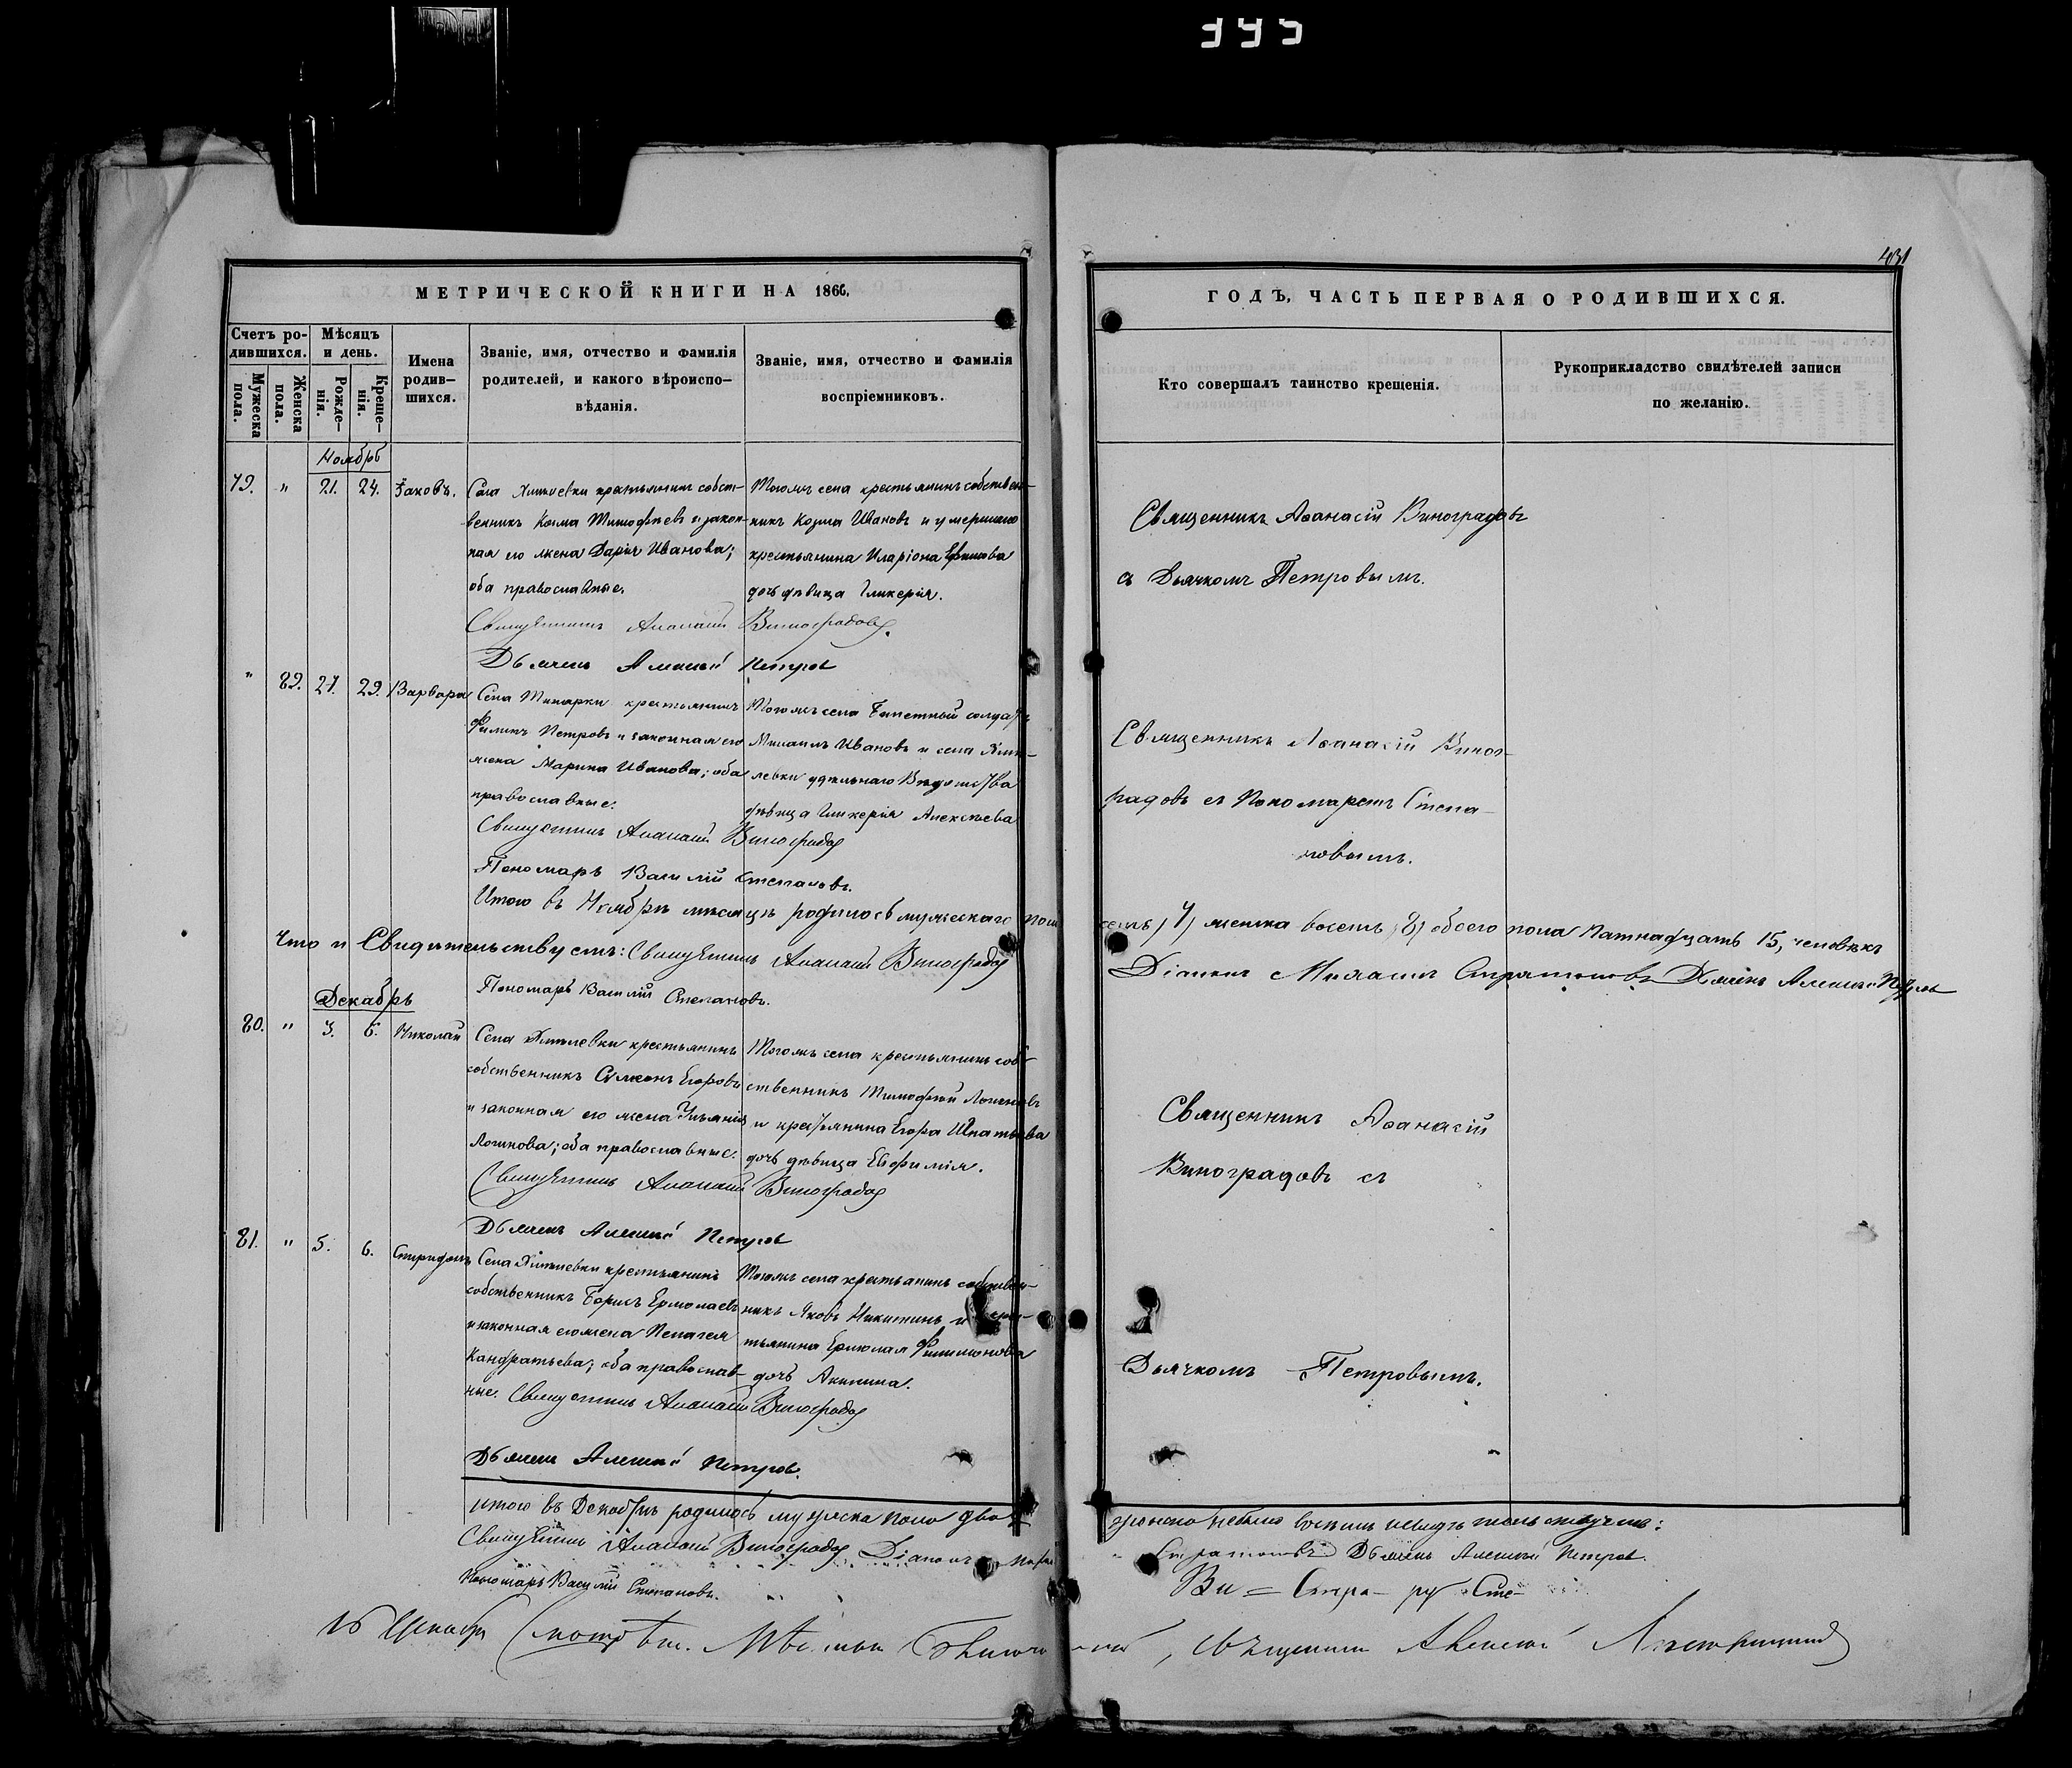 395
431
МЕТРИЧЕСКОЙ КНИГИ НА 1866,
ГОДЪ, ЧАСТЬ ПЕРВАЯ О РОДИВШИХСЯ.
Счетъ ро-
дившихся.
Мужеска
пола.
Женска
пола.
Мѣсяцъ
и день.
Рожде-
нія.
Креще-
нія.
Имена
родив-
шихся.
Званіе, имя, отчество и фамилія
родителей, и какого вѣроиспо-
вѣданія.
Званіе, имя, отчество и фамилія
воспріемниковъ.
Кто совершалъ таинство крещенія.
Рукоприкладство свидѣтелей записи
по желанію.
Ноябрь
79. " 21. 24. Іаковъ.
Села крестьянинъ собст-
венникъ Козма Тимофеевъ и закон-
ная его жена Дарія Иванова;
оба православные.
Тогожъ села крестьянинъ собствен-
никъ Козма Ивановъ и умершаго
крестьянина Иларіона Ефимова
дочь дѣвица Гликерія.
Священникъ Аѳанасій Виноградовъ
съ Дьячкомъ Петровымъ.
Священникъ Аѳанасій Виноградовъ.
Дьячекъ Алексѣй Петровъ
" 89. 27. 29. Варвара
Села крестьянинъ
Филипъ Петровъ и законная его
жена Марина Иванова; оба
православные.
Тогожъ села Билетный солдатъ
Михаилъ Ивановъ и села
левки удѣльнаго Вѣдомства
дѣвица Гликерія Алексѣева
Священникъ Аѳанасій Виног-
радовъ съ Пономаремъ Степа-
новымъ.
Священникъ Аѳанасій Виноградовъ
Пономарь Василій Степановъ.
Итого въ Ноябрѣ мѣсяцѣ родилось мужескаго пола семь, 7, женска восемь, 8, обоего пола пятнадцать 15, человѣкъ
Что и Свидѣтельствуемъ: Священникъ Аѳанасій Виноградовъ Діаконъ Михаилъ Дьячекъ Алексѣй Петровъ
Пономарь Василій Степановъ.
Декабрь
80. " 3. 6. Николай
Села крестьянинъ
собственникъ Симеонъ Егоровъ
и законная его жена Ульянія
Логинова; оба православные.
Тогожъ села крестьянинъ соб-
ственникъ Тимофей Логиновъ
и крестьянина Егора Игнатьева
дочь дѣвица Евфимія.
Священникъ Аѳанасій
Виноградовъ съ
Священникъ Аѳанасій Виноградовъ
Дьячекъ Алексѣй Петровъ
81. " 5. 6. Спиридонъ
Села крестьянинъ
собственникъ Борисъ Ермолаевъ
и законная его жена Пелагея
Кандратьева; оба православ-
ные.
Тогожъ села крестьянинъ собствен-
никъ Яковъ Никитинъ и крес-
тьянина Ермолая Филимонова
дочь Акилина.
Дьячкомъ Петровымъ.
Священникъ Аѳанасій Виноградовъ
Дьячекъ Алексѣй Петровъ.
Итого въ Декабрѣ родилось мужеска пола два
Священникъ Аѳанасій Виноградовъ Діаконъ Дьячекъ Алексѣй Петровъ.
Пономарь Василій Степановъ.